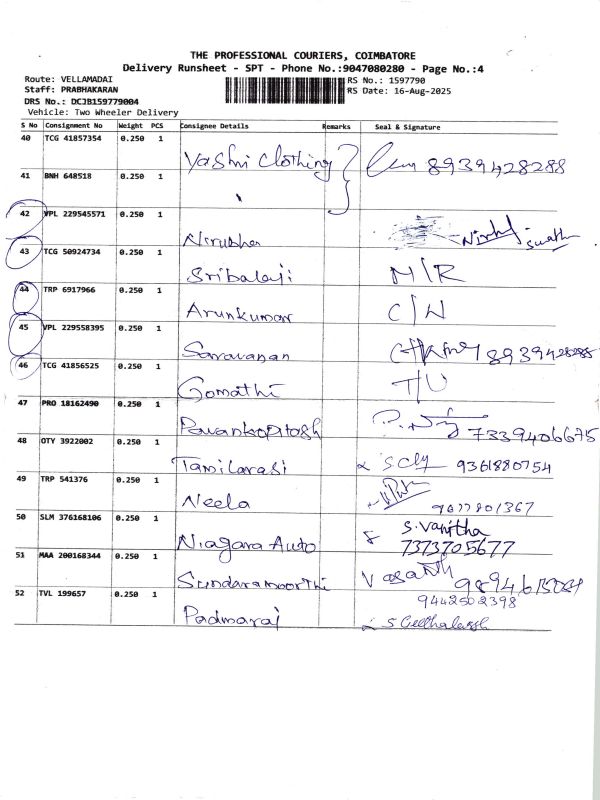 THE PROFESSIONAL COURIERS, COIMBATORE
Delivery Runsheet - SPT - Phone No.:9047080280 - Page No.:4
Route: VELLAMADAI RS No.: 1597790
Staff: PRABHAKARAN RS Date: 16-Aug-2025
DRS No.: DCJB159779004
Vehicle: Two Wheeler Delivery
S No Consignment No Weight PCS Consignee Details Remarks Seal & Signature
40 TCG 41857354 0.250 1
Yashni Clothing 8939428288
41 BNH 648518 0.250 1
42 VPL 229545571 0.250 1
Nirubha
43 TCG 50924734 0.250 1
Sribalaji N/R
44 TRP 6917966 0.250 1
Arunkumar
45 VPL 229558395 0.250 1
Saravanan 8939428288
46 TCG 41856525 0.250 1
Gomathi
47 PRO 18162490 0.250 1
7339406675
48 OTY 3922002 0.250 1
Tamilarasi 9361880754
49 TRP 541376 0.250 1
Neela 9677801367
50 SLM 376168106 0.250 1 S. Vanitha
Niagara Auto 7373705677
51 MAA 200168344 0.250 1
Sundaramoorthi Vasanth
52 TVL 199657 0.250 1 9442502398
Padmaraj